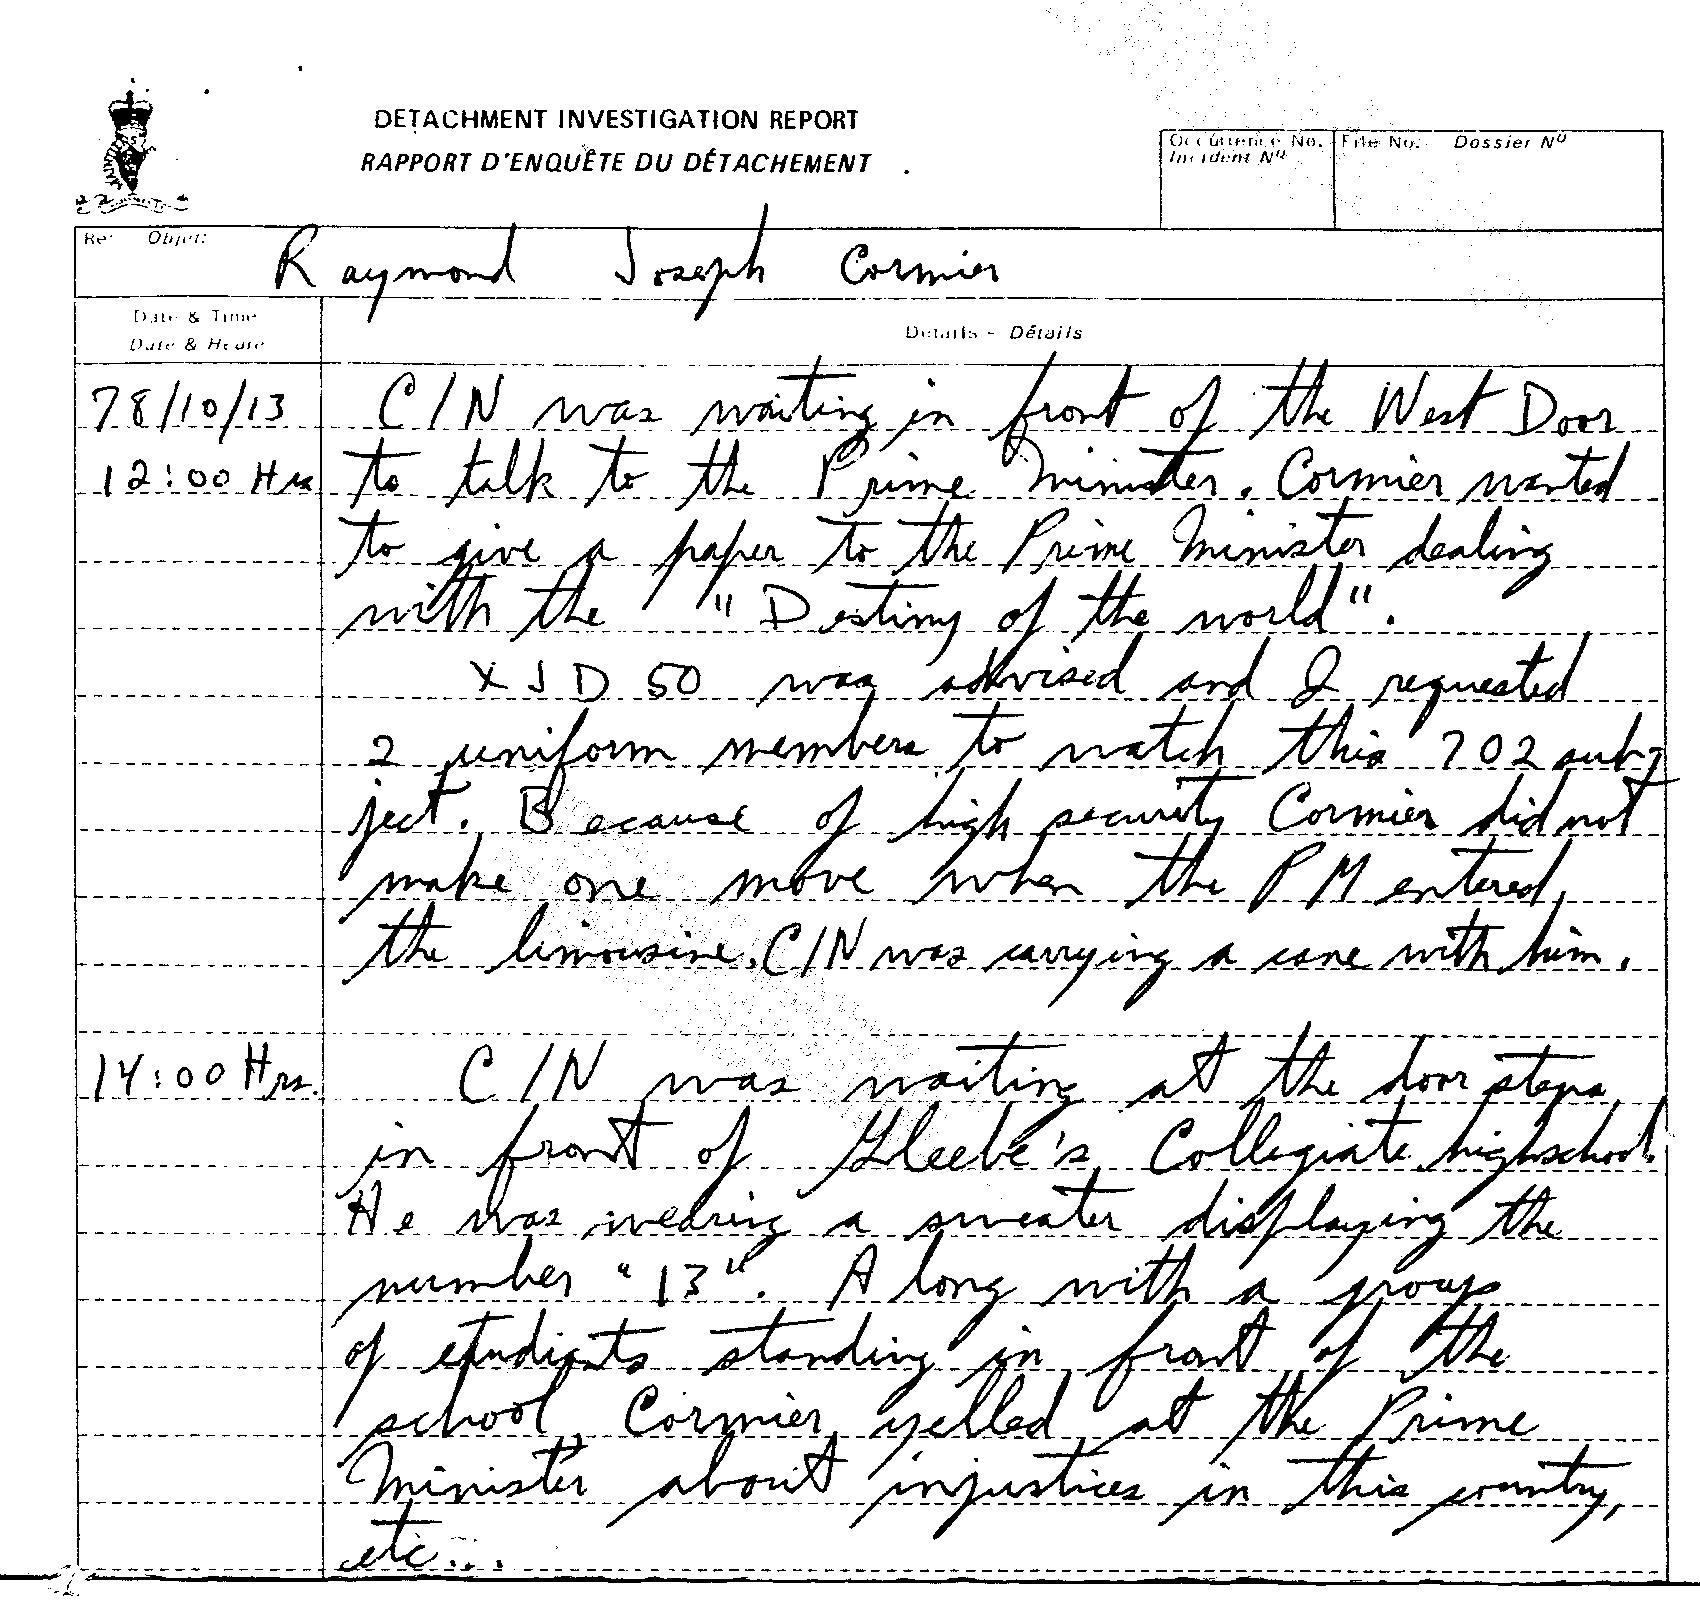 DETACHMENT INVESTIGATION REPORT
RAPPORT D'ENQUÊTE DU DÉTACHEMENT
Occurrence No. File No. Dossier Nº
Incident Nº
Re: Objet: Raymond Joseph Cormier
Date & Time
Date & Heure
Details - Détails
78/10/13 C/N was waiting in front of the West Door
12:00 Hrs to talk to the Prime Minister. Cormier wanted
to give a paper to the Prime Minister dealing
with the "Destiny of the world".
XJD 50 was advised and I requested
2 uniform members to watch this 702 sub-
ject. Because of high security Cormier did not
make one move when the PM entered
the limousine. C/N was carrying a cane with him.
14:00 Hrs. C/N was waiting at the door steps
in front of Gleebe's Collegiate highschool.
He was wearing a sweater displaying the
number "13". A long with a group
of students standing in front of the
school Cormier yelled at the Prime
Minister about injustices in this country,
etc...